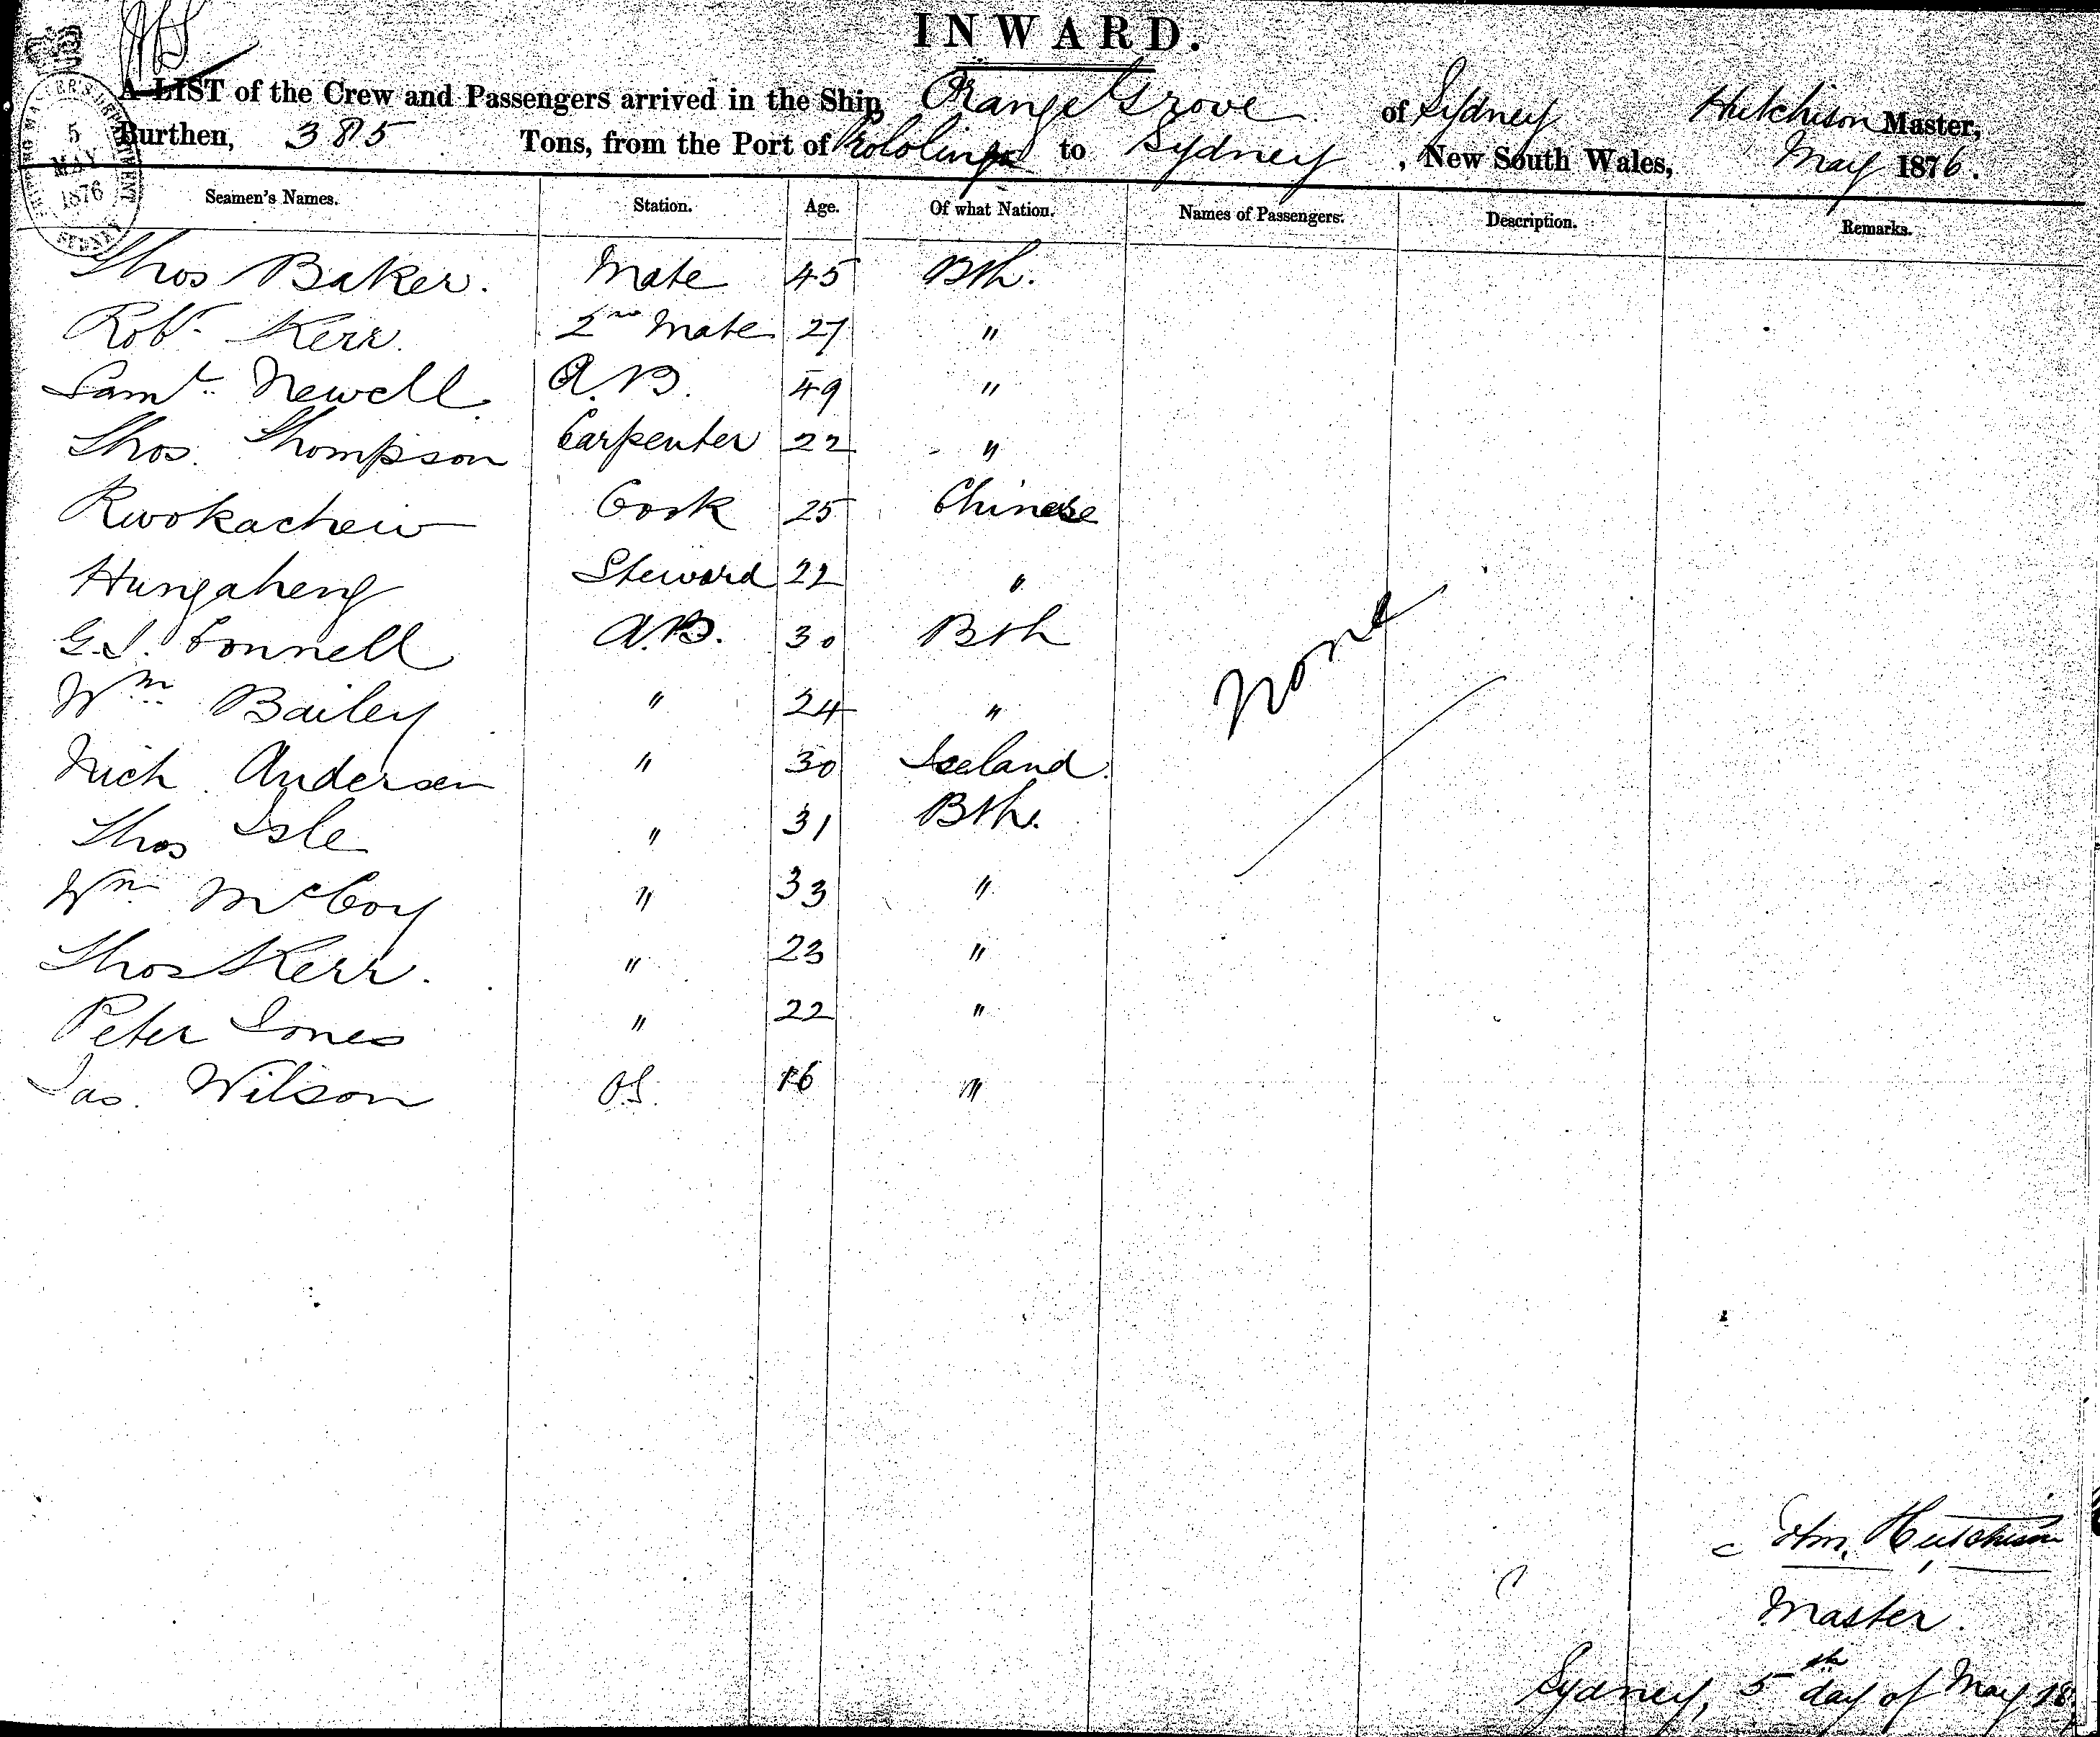 INWARD.
A LIST of the Crew and Passengers arrived in the Ship Orange Grove of Sydney Hutchison Master,
Burthen, 385 Tons, from the Port of to Sydney, New South Wales, May 1876.
5
MAY
1876
SYDNEY
Seamen's Names. Station. Age. Of what Nation. Names of Passengers. Description. Remarks.
Thos Baker. Mate 45 Bth.
Robt Kerr. 2nd Mate 27 "
Saml Newell. A.B. 49 "
Thos. Thompson Carpenter 22 "
Kwokachew Cook 25 Chinese
Hungaheng Steward 22 "
G.J. Connell A.B. 30 Bth
Wm Bailey " 24 "
Nich. Andersen " 30 Iceland.
Thos Isle " 31 Bth.
Wm McCoy " 33 "
Thos Kerr. " 23 "
Peter Jones " 22 "
Jas. Wilson O.S. 16 "
None
Hutchison
Master.
Sydney, 5th day of May 18